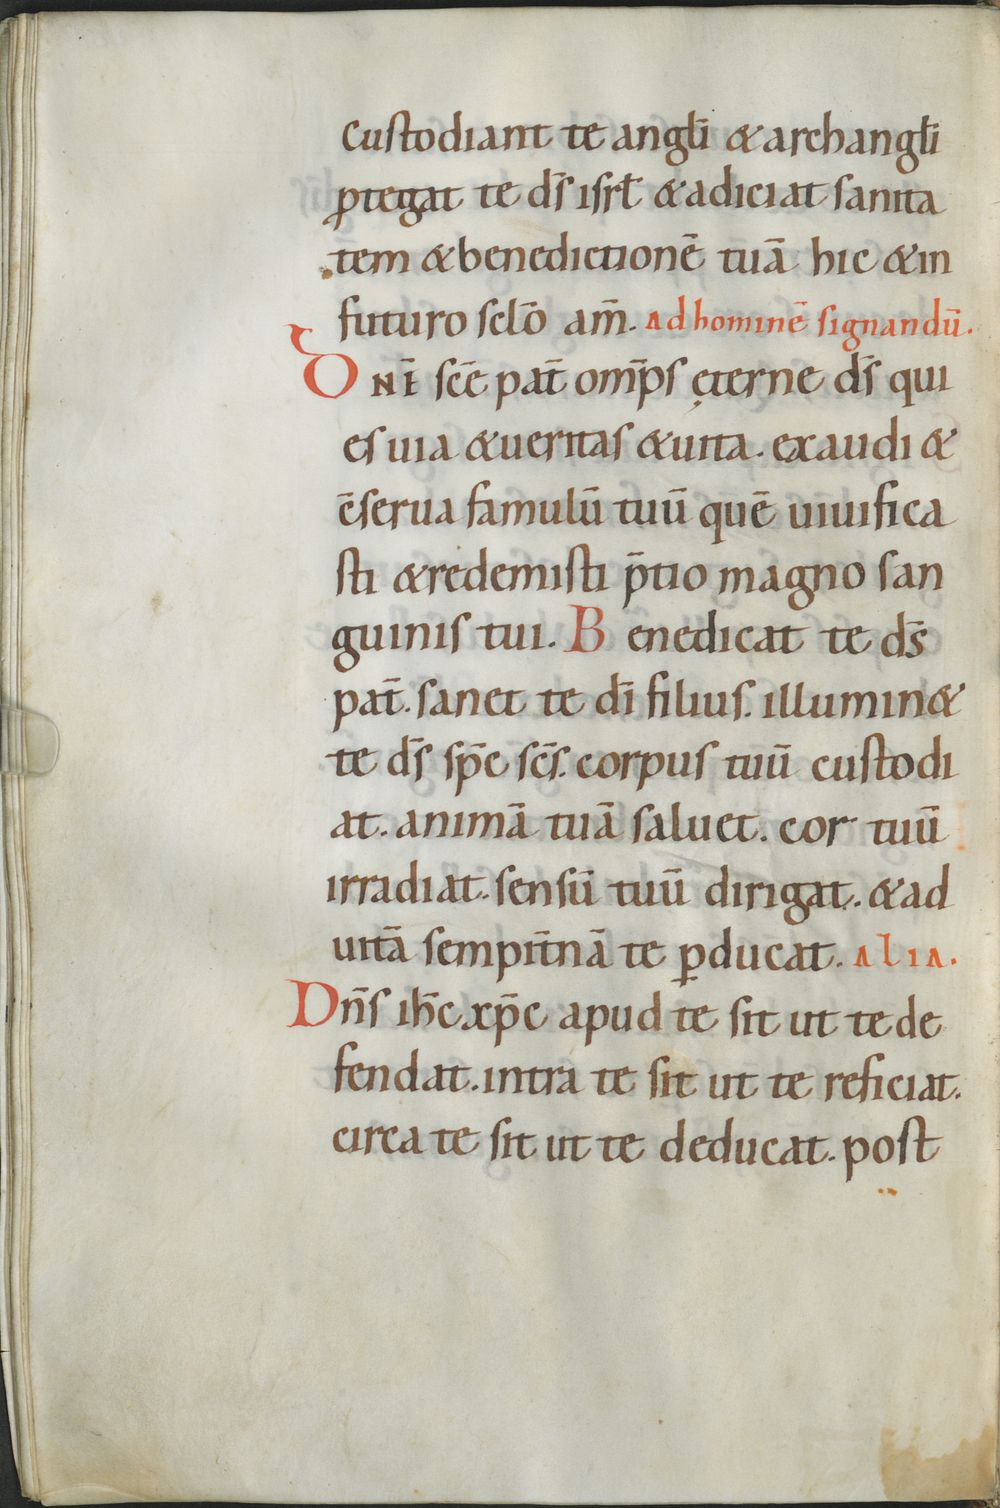 Custodiant te angƚi & archangƚi
ꝓtegat te ds̄ isrƚ & adiciat sanita
tem & benedictionē tuā hic & in
futuro sclō am̄. Ad hominē signandū.
Dnī scē pat̄ omp̄s ęterne ds̄ qui
es uia & ueritas & uita. exaudi &
c̄serua famulū tuū quē uiuifica
sti & redemisti p̄tio magno san
guinis tui. Benedicat te ds̄
pat̄. sanet te dī filius. illumin&
te ds̄ sp̄c sc̄s. corpus tuū custodi
at. animā tuā saluet. cor tuū
irradiat. sensū tuū dirigat. & ad
uitā sempit̄nā te ꝑducat. Alia.
Dn̄s ih̄c xp̄c apud te sit ut te de
fendat. intra te sit ut te reficiat.
circa te sit ut te deducat. post